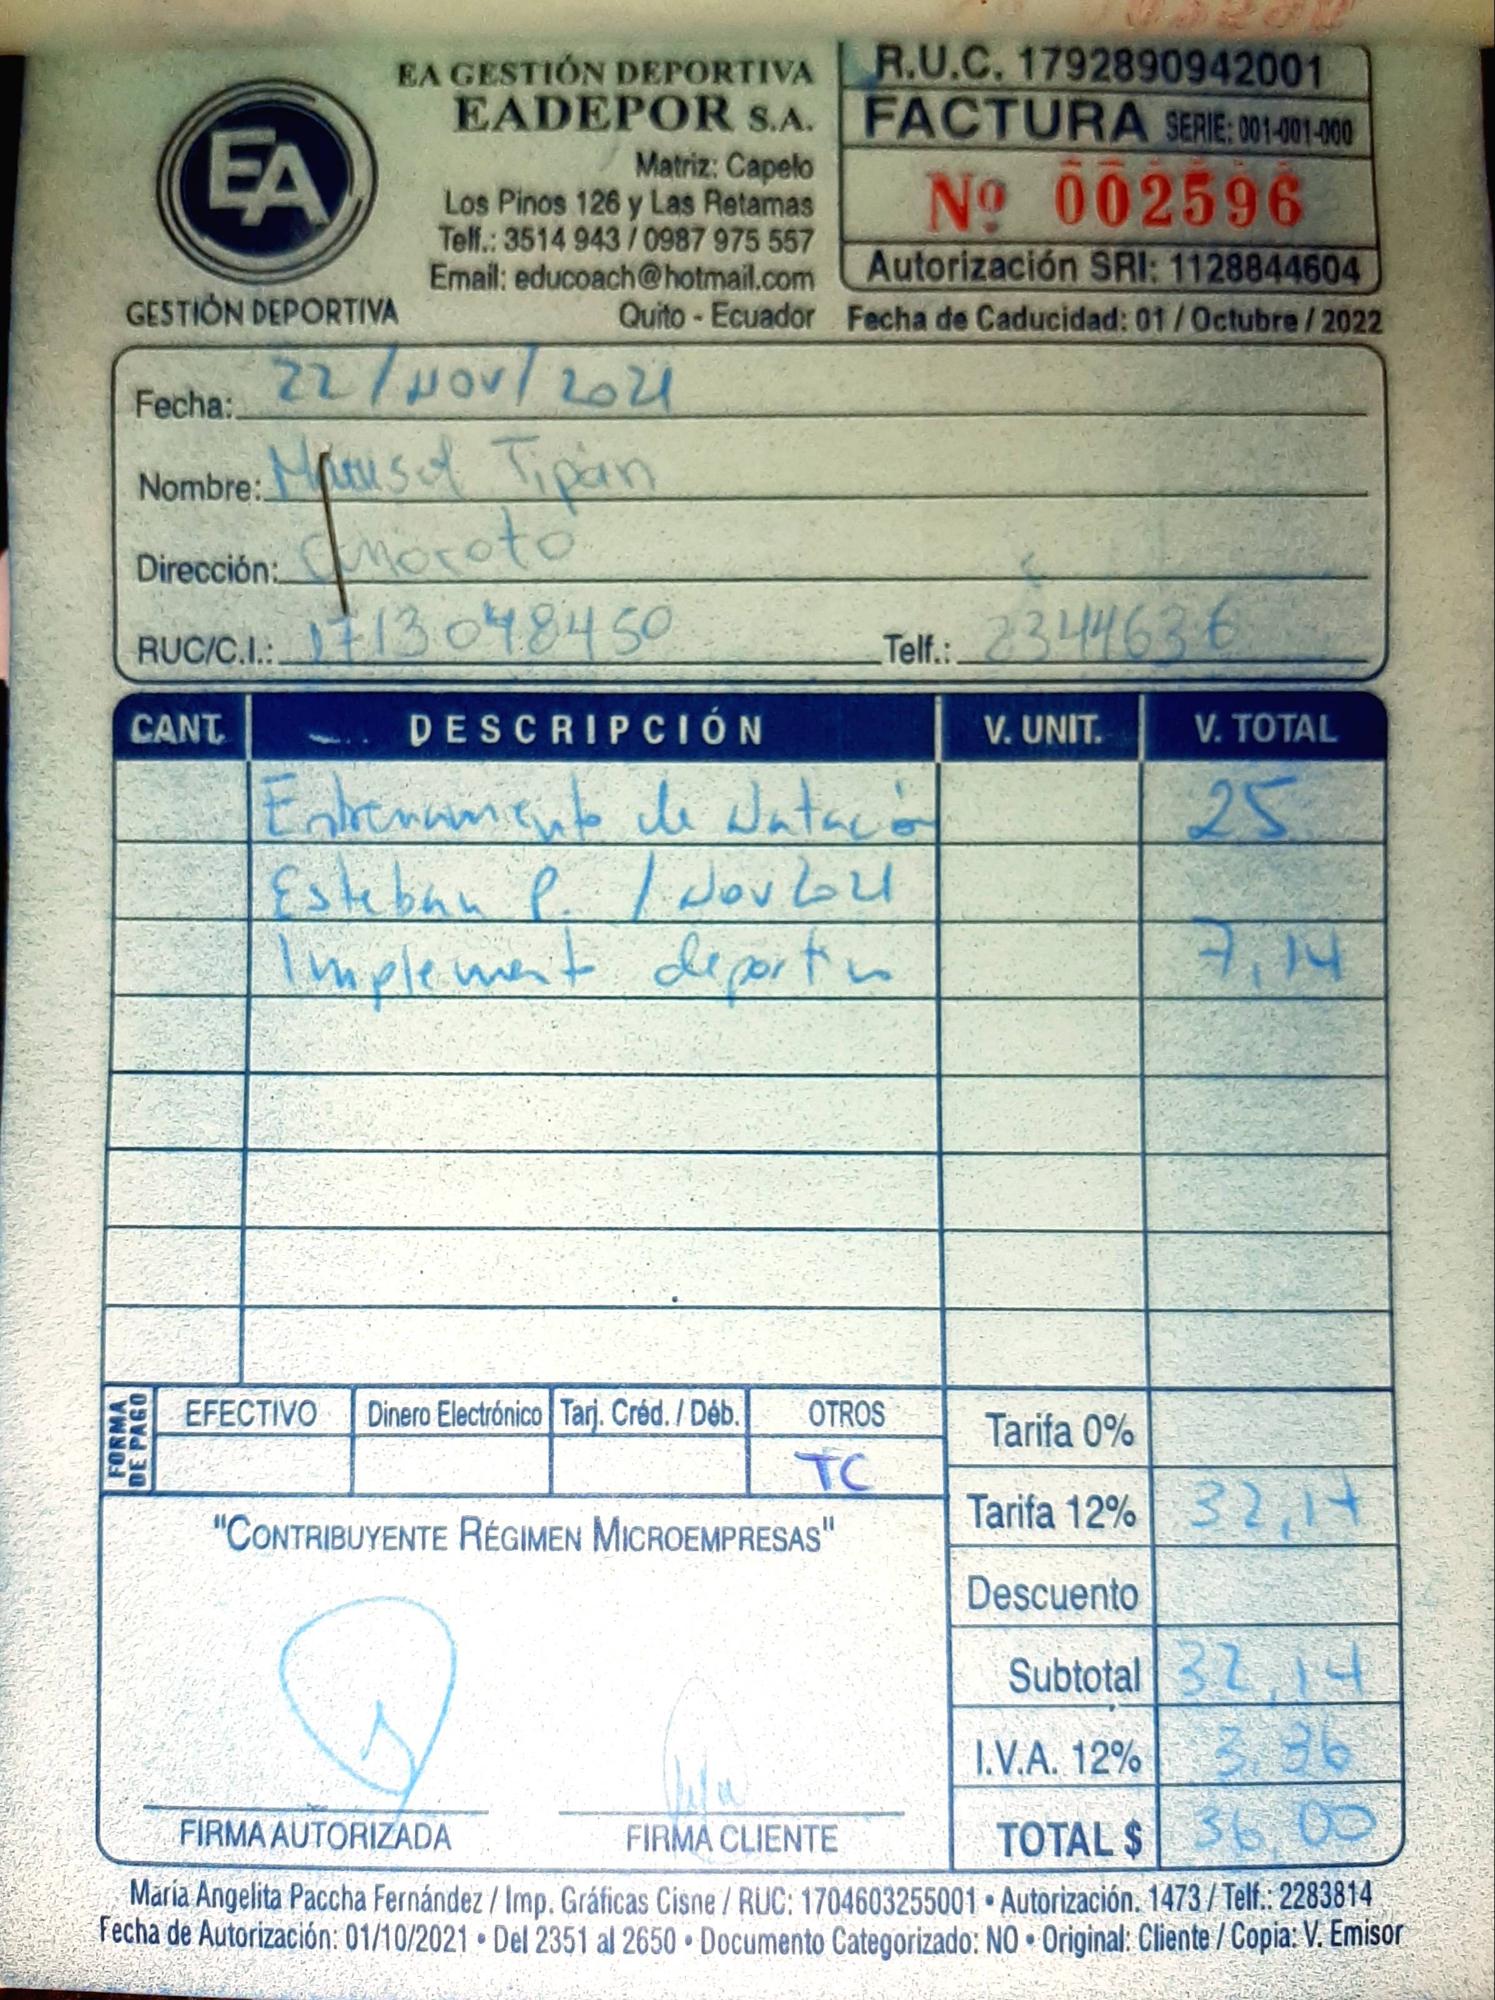 EA GESTIÓN DEPORTIVA
EADEPOR S.A.
Matriz: Capelo
Los Pinos 126 y Las Retamas
Telf.: 3514 943 / 0987 975 557
Email: educoach@hotmail.com
Quito - Ecuador
EA
GESTIÓN DEPORTIVA
R.U.C. 1792890942001
FACTURA SERIE: 001-001-000
Nº 002596
Autorización SRI: 1128844604
Fecha de Caducidad: 01 / Octubre / 2022
Fecha: 22/Nov/2021
Nombre: Marisol Tipán
Dirección:
RUC/C.I.: 1713048450 Telf.: 2344636
CANT. DESCRIPCIÓN V. UNIT. V. TOTAL
Entrenamiento de Natación 25
Esteban P. / Nov 2021
Implement deportivo 7,14
FORMA DE PAGO
EFECTIVO Dinero Electrónico Tarj. Créd. / Déb. OTROS
TC
Tarifa 0%
Tarifa 12% 32,14
Descuento
Subtotal 32,14
I.V.A. 12% 3.86
TOTAL $ 36,00
"CONTRIBUYENTE RÉGIMEN MICROEMPRESAS"
FIRMA AUTORIZADA FIRMA CLIENTE
María Angelita Paccha Fernández / Imp. Gráficas Cisne / RUC: 1704603255001 • Autorización. 1473 / Telf.: 2283814
Fecha de Autorización: 01/10/2021 • Del 2351 al 2650 • Documento Categorizado: NO • Original: Cliente / Copia: V. Emisor